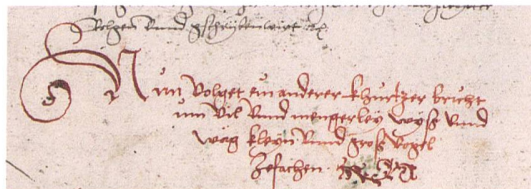 volgen vnnd gschryben wirt ꝛc
Nun volget ein anderer khurtzer bricht
vm vil vnnd mengerley wyß vnnd
wäg kleyn vnnd groß vogel
zefachen.